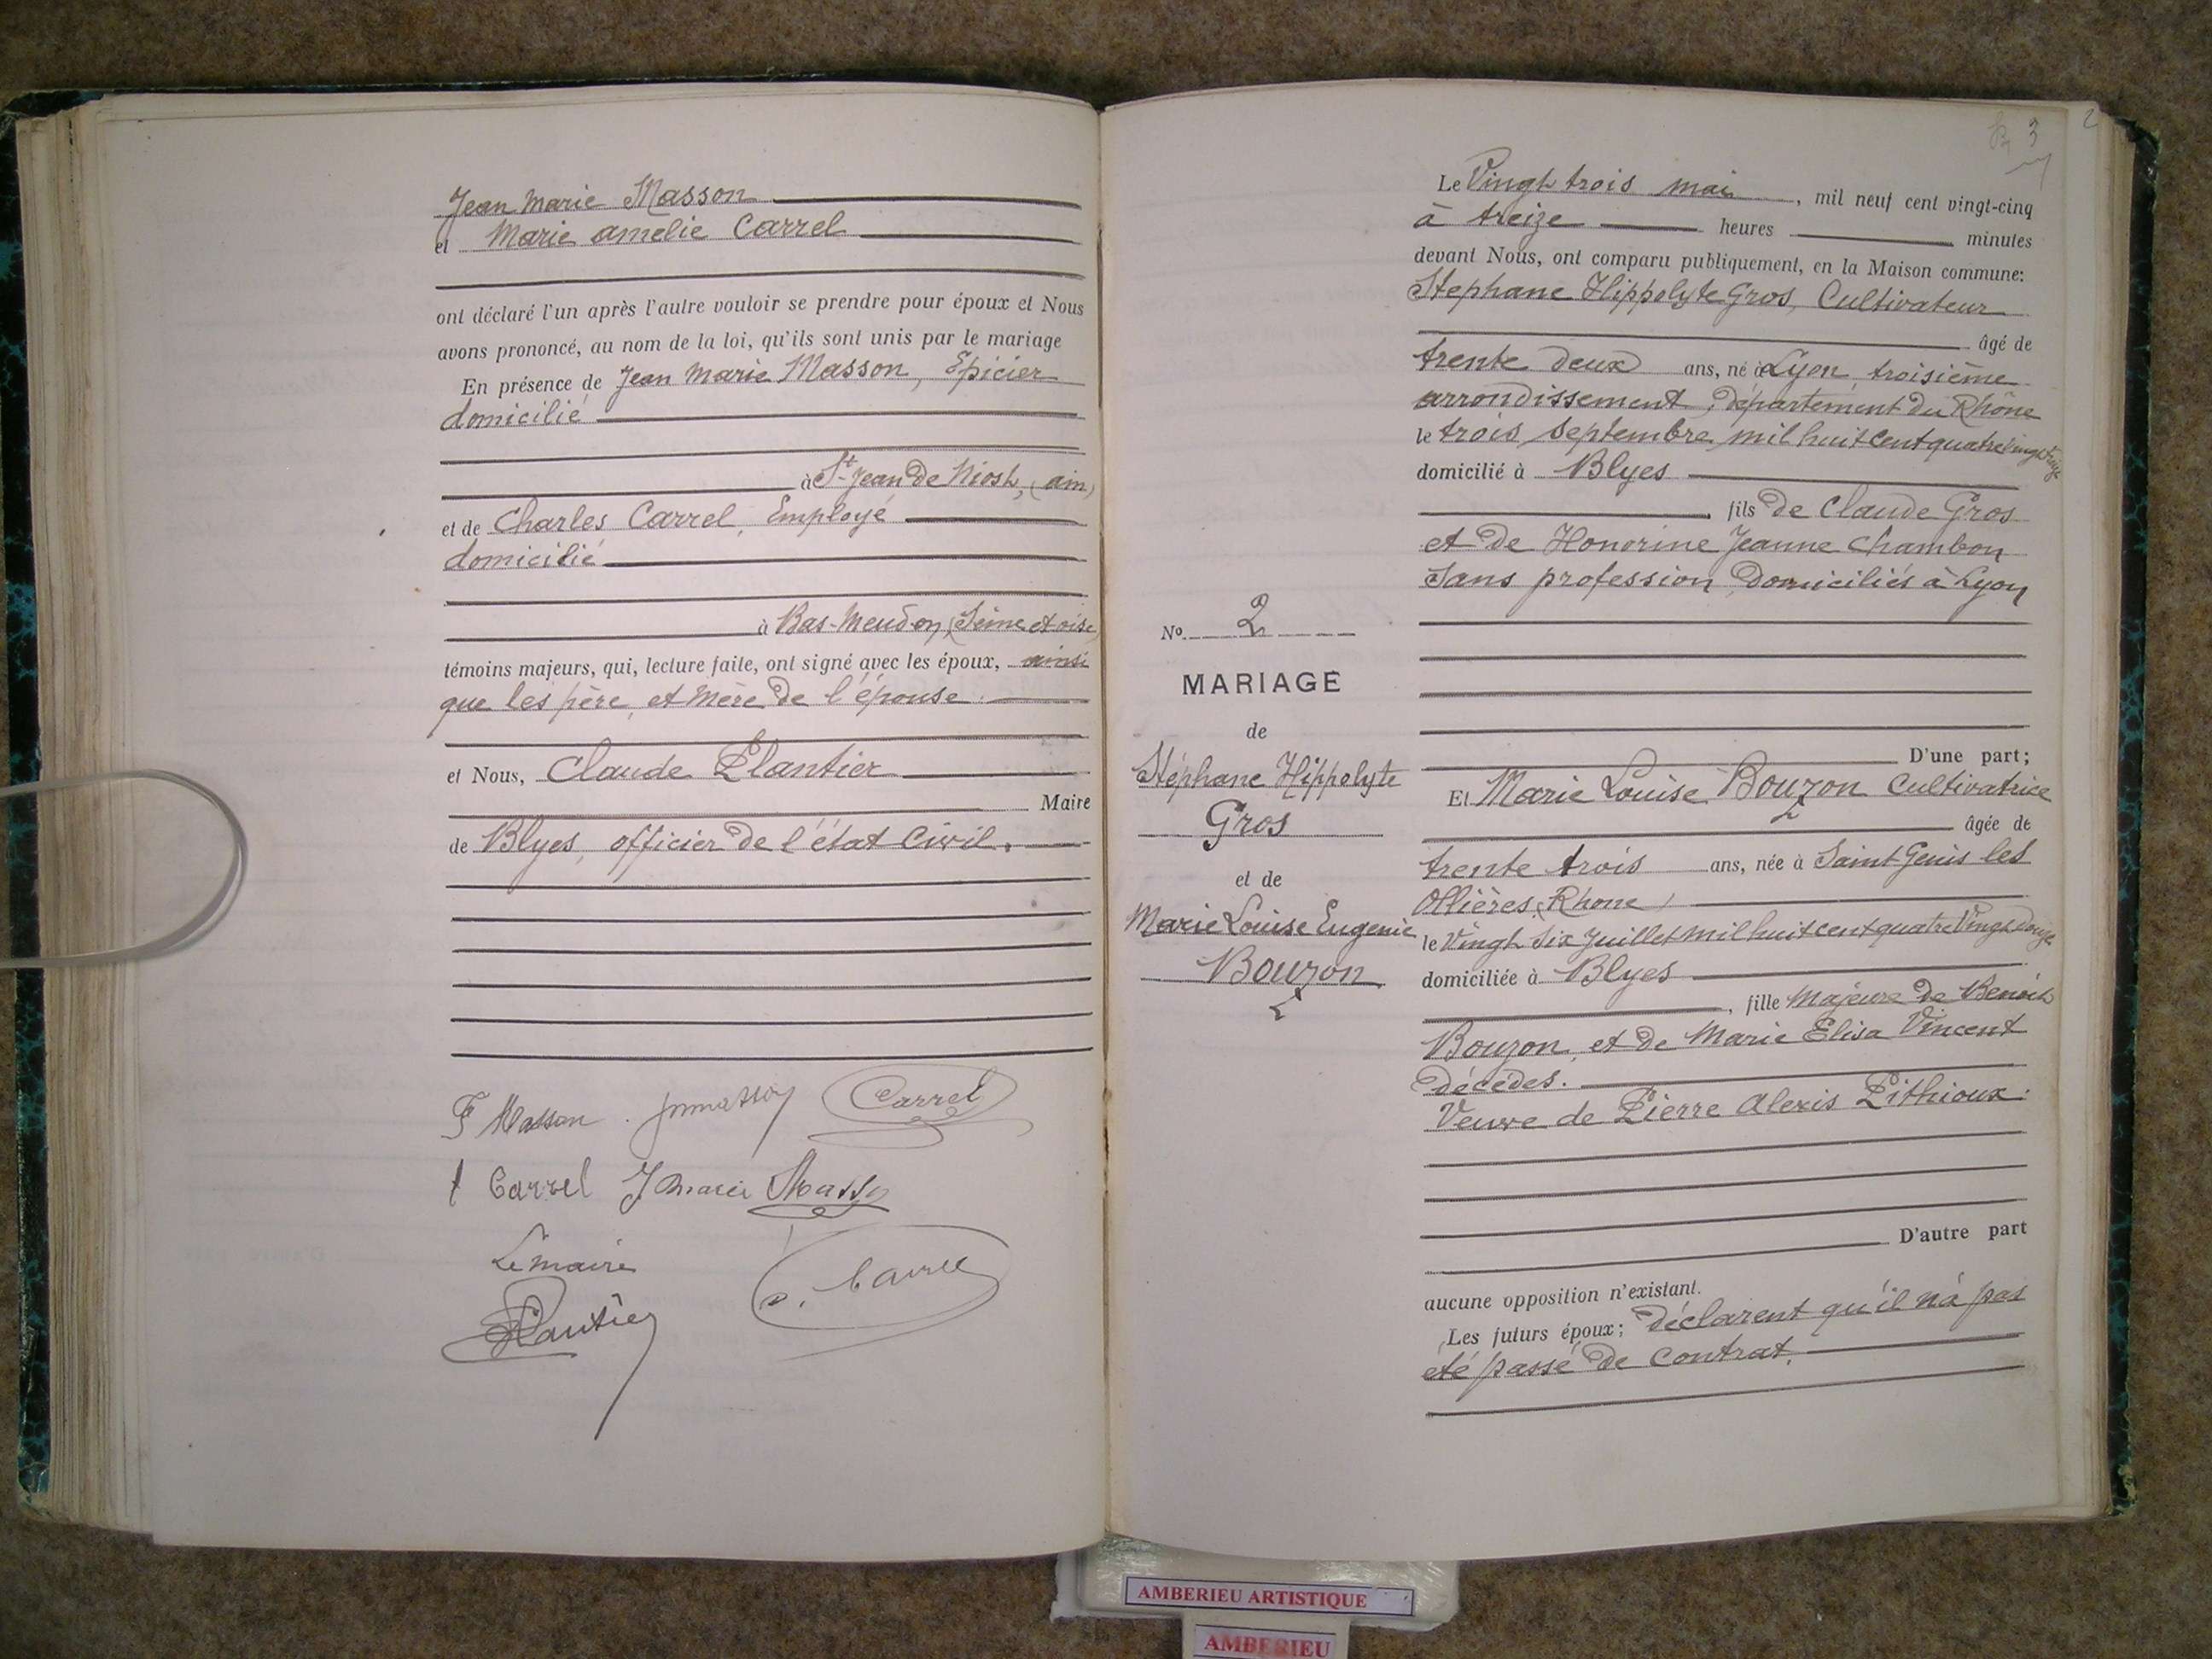 Jean Marie Masson
et Marie amelie Carrel
ont déclaré l'un après l'autre vouloir se prendre pour époux et Nous
avons prononcé, au nom de la loi, qu'ils sont unis par le mariage
En présence de Jean Marie Masson, Epicier
domicilié
à St Jean de Niost, (ain)
et de Charles Carrel, Employé
domicilié
à Bas-Meudon (Seine et oise)
témoins majeurs, qui, lecture faite, ont signé avec les époux, ainsi
que les père, et mère de l'épouse.
et Nous, Claude Plantier
Maire
de Blyes, officier de l'état Civil.
F Masson. jmmasson Carrel
Carrel J Marie Masson
Le maire
Plantier
Carrel
3
2
Le Vingt trois mai, mil neuf cent vingt-cinq
à treize heures minutes
devant Nous, ont comparu publiquement, en la Maison commune:
Stephane Hippolyte Gros, Cultivateur
âgé de
trente deux ans, né à Lyon, troisième
arrondissement, département du Rhône
le trois septembre mil huit cent quatre vingt
domicilié à Blyes
fils de Claude Gros
et de Honorine Jeanne Chambon
Sans profession, Domiciliés à Lyon
D'une part;
Et Marie Louise Bouzon Cultivatrice
âgée de
trente trois ans, née à Saint Genis les
Ollières (Rhone)
le Vingt Six Juillet mil huit cent quatre Vingt douze
domiciliée à Blyes
, fille Majeure de Benoit
Bouzon, et de Marie Elisa Vincent
décédés.
Veuve de Pierre Alexis Pithioux.
D'autre part
aucune opposition n'existant.
Les futurs époux; déclarent qu'il n'a pas
été passé de contrat.
No 2
MARIAGE
de
Stéphane Hippolyte
Gros
et de
Marie Louise Eugenie
Bouzon
AMBERIEU ARTISTIQUE
AMBERIEU